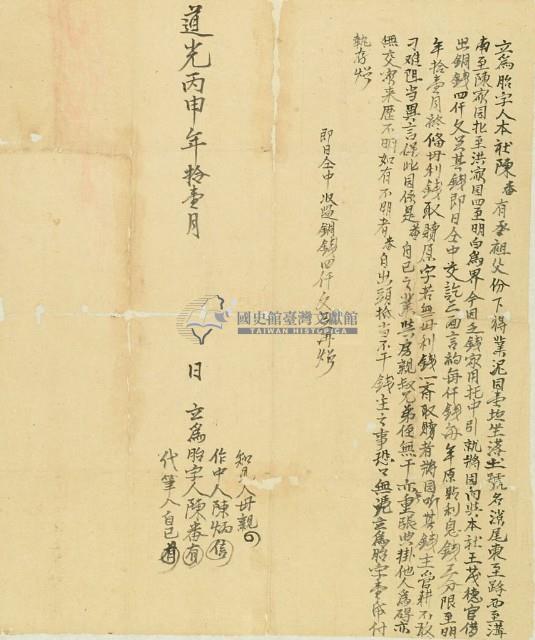 立為胎字人本社陳番有承祖父份下得業泥田壹坵坐落土號名濱尾東至路西至溝
南至陳家田北至洪家田四至明白為界今因乏錢家用托中引就將田向與本社王茂德官借
出銅錢四仟文足其錢即日仝中交訖三面言約每仟錢每年原貼利息錢三分限至明
年拾壹月終備母利錢取贖原字若無母利錢一齊取贖者將田听其錢主管耕不敢
刁难阻当異言保此田係是番自已之業與房親叔兄弟侄無干亦重張典掛他人為碍亦
無交加來歷不明如有不明者番自出頭抵当不干錢主之事恐口無憑立為胎字壹紙付
執存炤
即日仝中收過銅錢四仟文足再炤
知見人母親
作中人陳炳
道光丙申年拾壹月 日立為胎字人陳番有
代筆人自已
國史館臺灣文獻館
TAIWAN HISTORICA